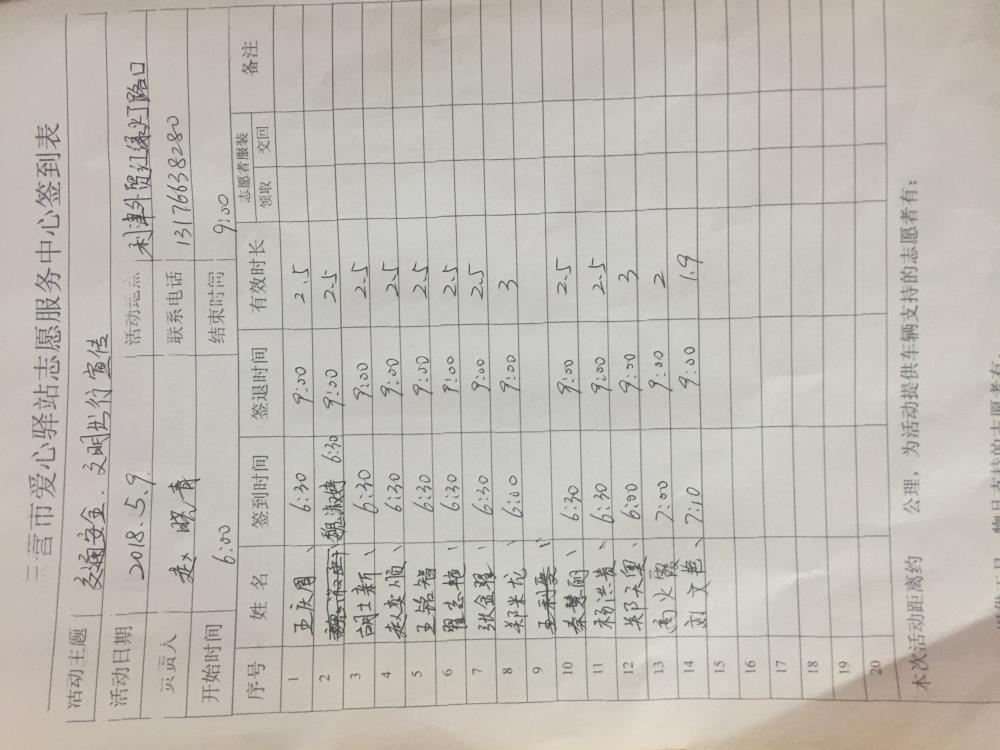 东营市爱心驿站志愿服务中心签到表
活动主题 交通安全、文明出行宣传
活动日期 2018.5.9 活动地点 利津外贸红绿灯路口
负责人 赵晓青 联系电话 13176638280
开始时间 6:00 结束时间 9:00
序号 姓名 签到时间 签退时间 有效时长 志愿者服装 领取 交回 备注
1 王庆国 6:30 9:00 2.5
2 魏淑婷 6:30 9:00 2.5
3 胡士新 6:30 9:00 2.5
4 赵奕顺 6:30 9:00 2.5
5 王铭智 6:30 9:00 2.5
6 翟志艳 6:30 9:00 2.5
7 张金 6:30 9:00 2.5
8 郑米龙 6:00 9:00 3
9 王利
10 秦慧丽 6:30 9:00 2.5
11 杨洪贵 6:30 9:00 2.5
12 郑天 6:00 9:00 3
13 高火霞 7:00 9:00 2
14 刘文艳 7:10 9:00 1.9
15
16
17
18
19
20
本次活动距离约 公理，为活动提供车辆支持的志愿者有：
物品支持的志愿者有